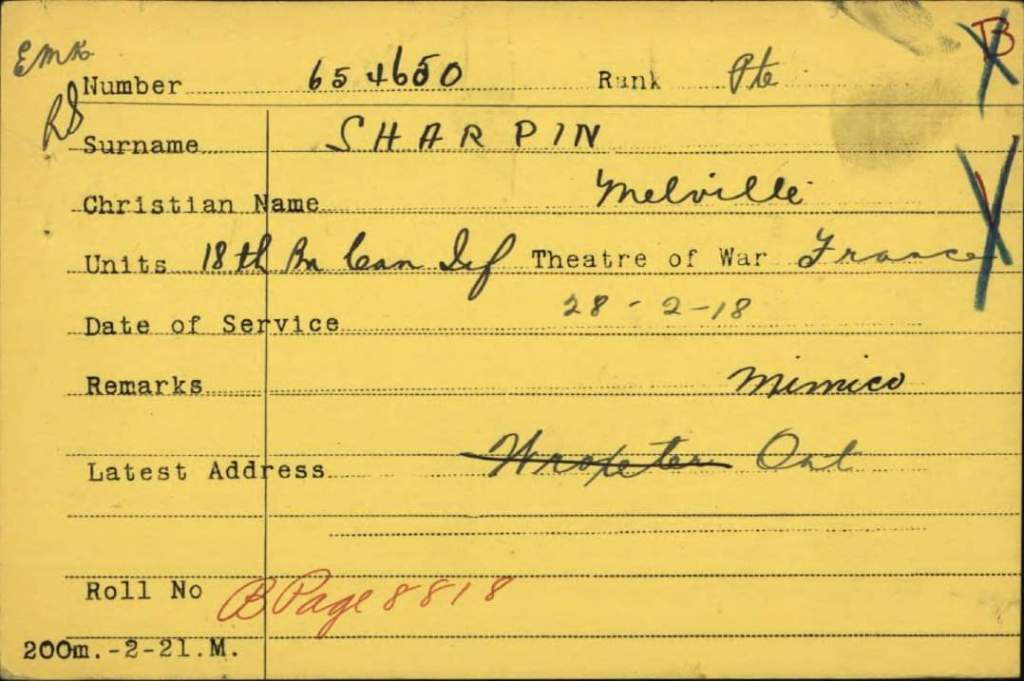 EMK
B
Number 654650 Rank Pte
RS
Surname SHARPIN
Christian Name Melville
Units 18th Bn Can Inf Theatre of War France
Date of Service 28-2-18
Remarks Mimico
Latest Address Wroxeter Ont
Roll No B Page 8818
200m.-2-21.M.